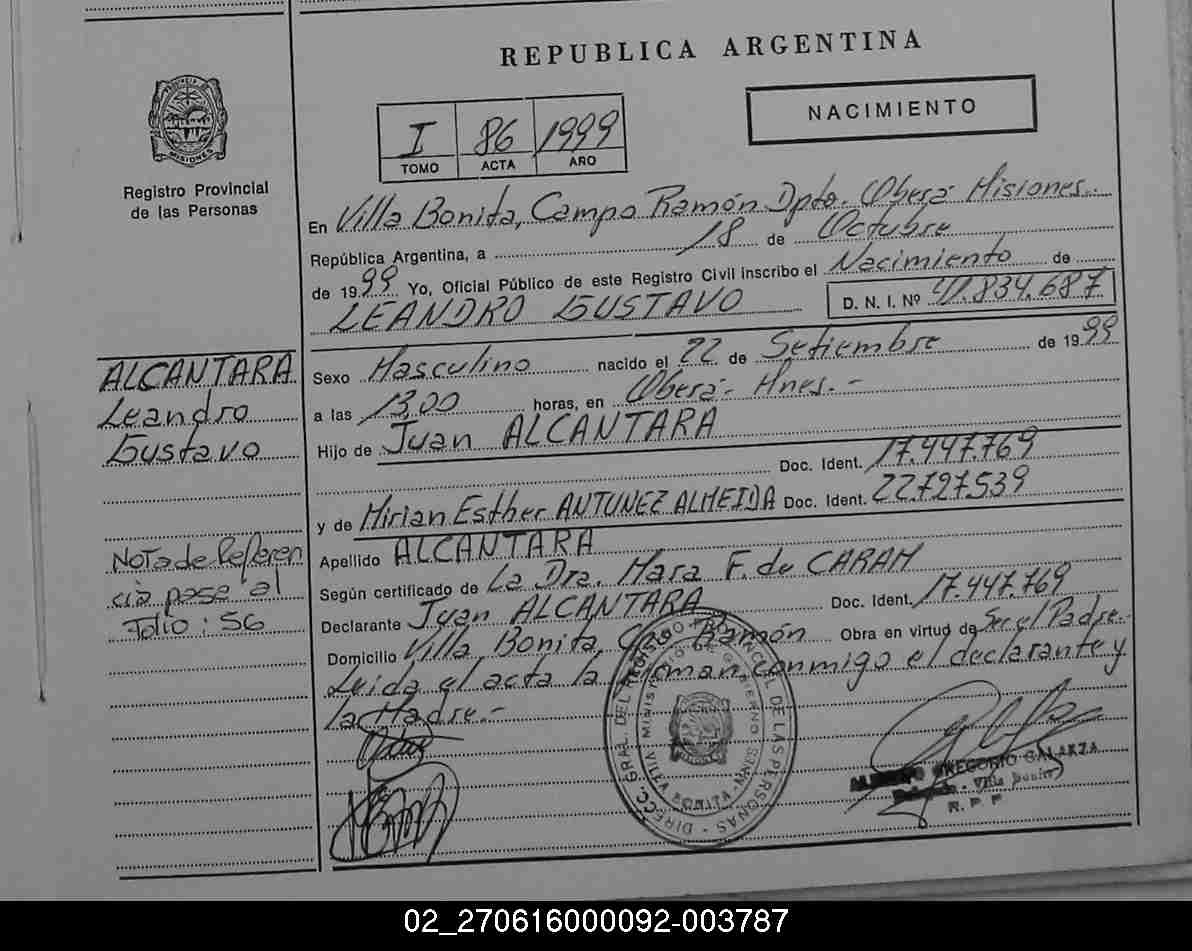 REPUBLICA ARGENTINA
PROVINCIA DE MISIONES
Registro Provincial
de las Personas
NACIMIENTO
I 86 1999
TOMO ACTA AÑO
En Villa Bonita, Campo Ramón Dpto. Oberá Misiones.
República Argentina, a 18 de Octubre
de 1999 Yo, Oficial Público de este Registro Civil inscribo el Nacimiento de
LEANDRO GUSTAVO D. N. I. Nº 41.834.687
Sexo Masculino nacido el 22 de Setiembre de 1999
a las 13,00 horas, en Oberá- Mnes.-
Hijo de Juan ALCANTARA
Doc. Ident. 17.447.769
y de Mirian Esther ANTUNEZ ALMEIDA Doc. Ident. 22.727.539
Apellido ALCANTARA
Según certificado de La Dra. Mara F. de CARAM
Declarante Juan ALCANTARA Doc. Ident. 17.447.769
Domicilio Villa Bonita, Cpo Ramón Obra en virtud de Ser el Padre.
Leida el acta la firman conmigo el declarante y
la Madre.-
ALCANTARA
Leandro
Gustavo
Nota de Referen
cia pase al
Folio: 56
DIRECC. GRAL. DEL REGISTRO PROVINCIAL DE LAS PERSONAS
MINISTERIO DE GOBIERNO
VILLA BONITA - MNES
GREGORIO GALARZA
Villa Bonita
R. P. P.
02_270616000092-003787